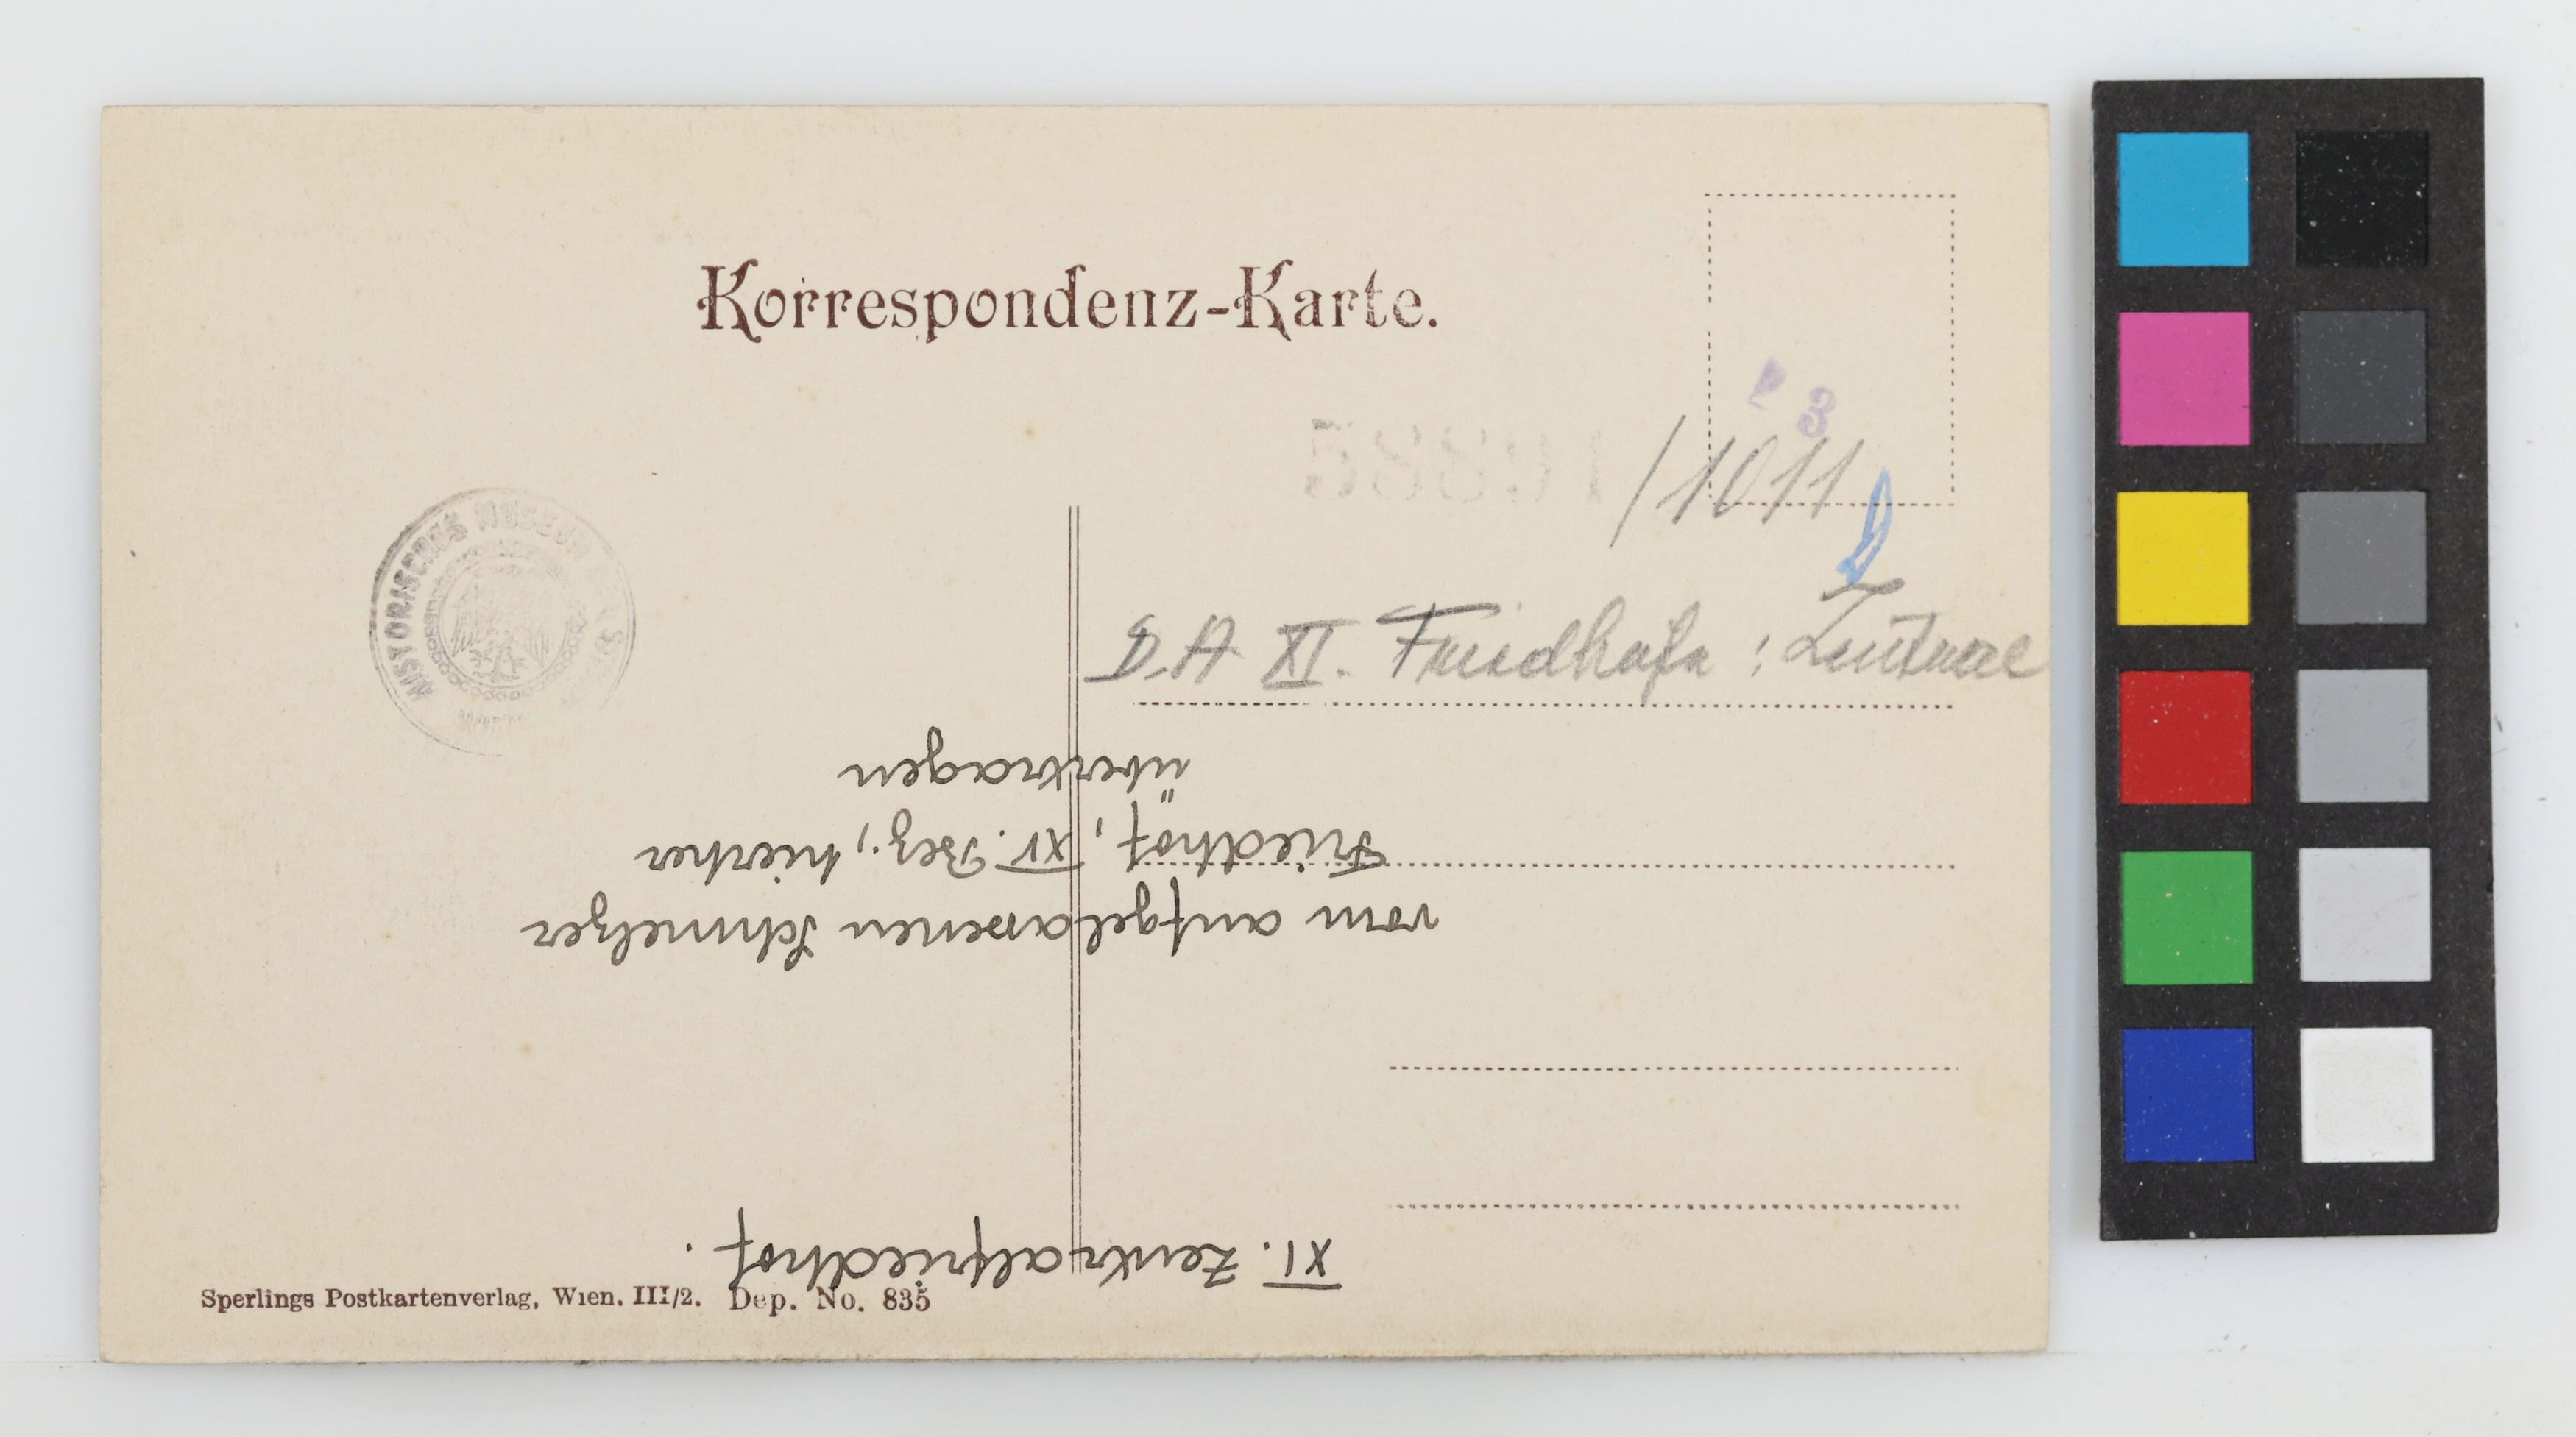 Korrespondenz-Karte.
3
58891/1011
HISTORISCHES MUSEUM
D.A XI. Friedhöfe: Zentral
XI. Zentralfriedhof.
vom aufgelassenen Schmelzer
Friedhof, XV. Bez., hierher
übertragen
Sperlings Postkartenverlag, Wien. III/2. Dep. No. 835